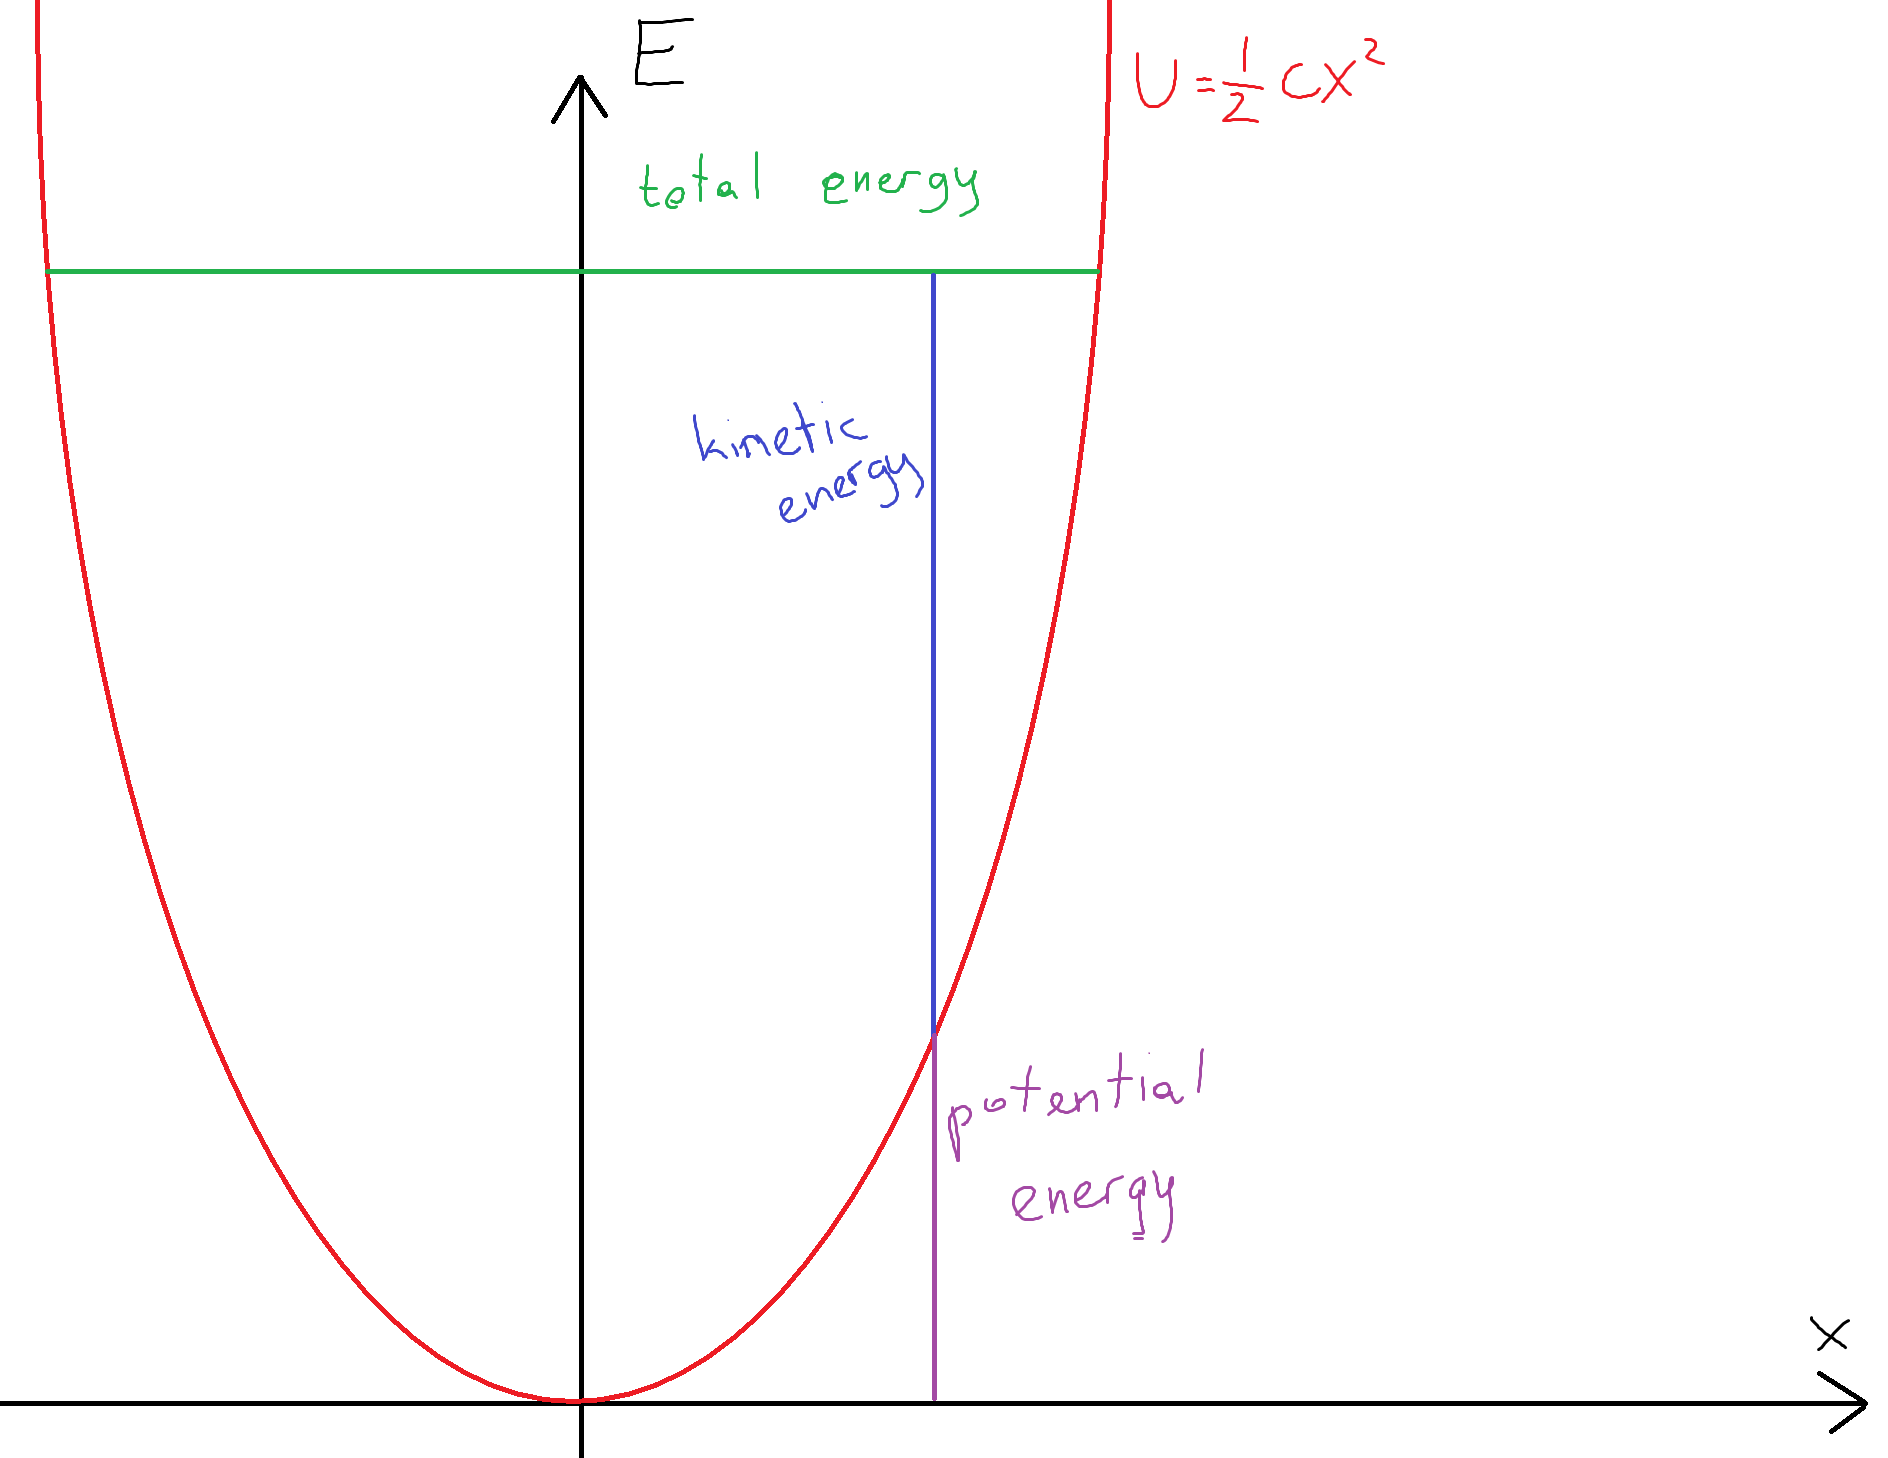 E
U = 1/2 cx²
total energy
kinetic
energy
potential
energy
x